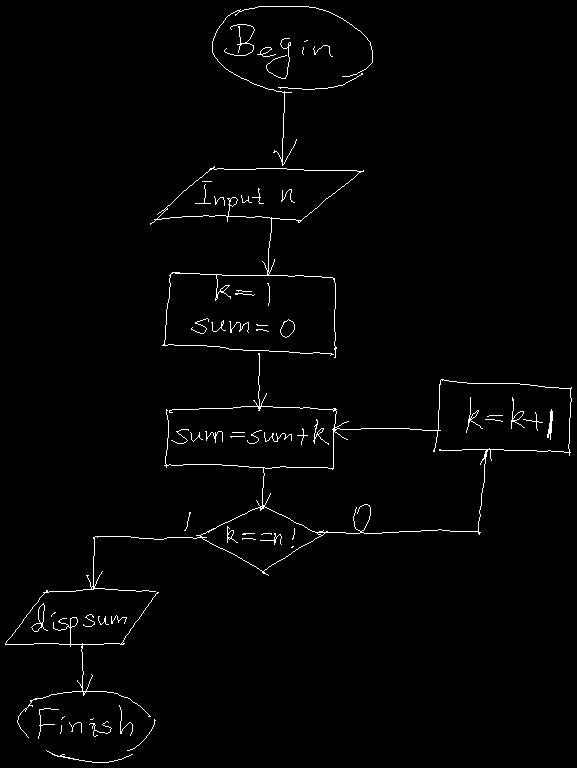 Begin
Input n
k=1
sum=0
sum=sum+k
k=k+1
1
k==n!
0
disp sum
Finish